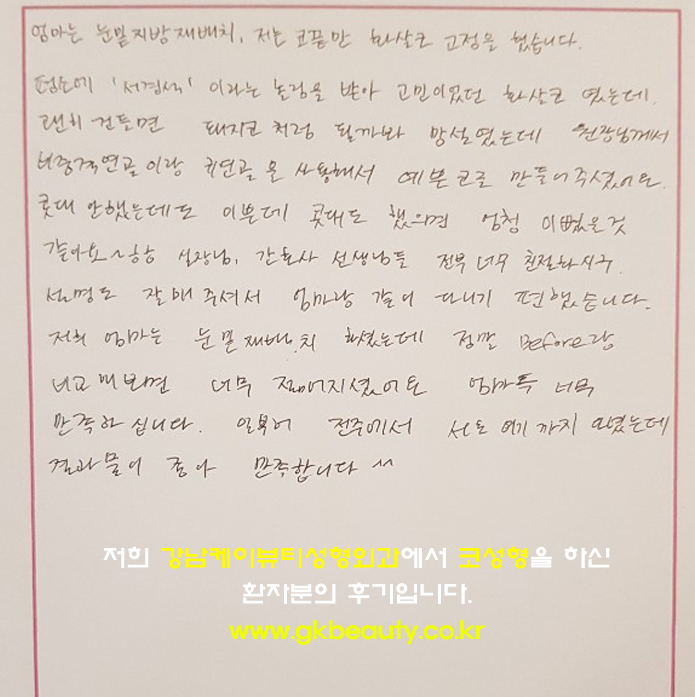 엄마는 눈밑지방재배치, 저는 코끝만 화살코 교정을 했습니다.
평소에 '서경석' 이라는 놀림을 받아 고민이었던 화살코 였는데.
괜히 건들면 돼지코 처럼 될까봐 망설였는데 원장님께서
비중격연골이랑 귀연골 을 사용해서 예쁜코를 만들어주셨어요.
콧대 안했는데도 이쁜데 콧대도 했으면 엄청 이뻤을것
같아요~ 실장님, 간호사 선생님들 전부 너무 친절하시구.
설명도 잘해 주셔서 엄마랑 같이 다니기 편했습니다.
저희 엄마는 눈밑재배치 하셨는데 정말 Before랑
비교해보면 너무 젊어지셨어요 엄마두 너무
만족하 십니다. 일부러 전주에서 서울 여기 까지 왔는데
결과물이 좋아 만족합니다 ^^
저희 강남케이뷰티성형외과에서 코성형을 하신
환자분의 후기입니다.
www.gkbeauty.co.kr